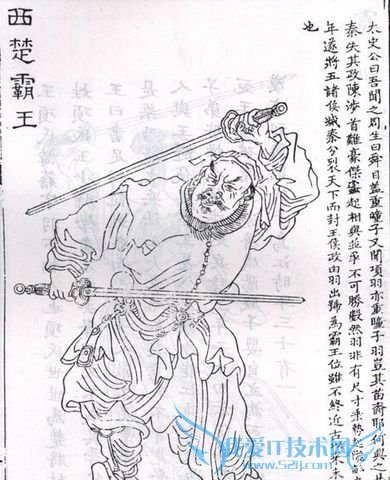 太史公曰吾聞之周生曰舜目盖重瞳子又聞項羽亦重瞳子羽豈其苗裔耶何興之
秦失其政陳涉首難豪傑蠭起相與並爭不可勝數然羽非有尺寸乘勢
年遂將五諸侯滅秦分裂天下而封王侯政由羽出號為霸王位雖不終近古
也
西楚霸王
我爱IT技术网
www.52ij.com